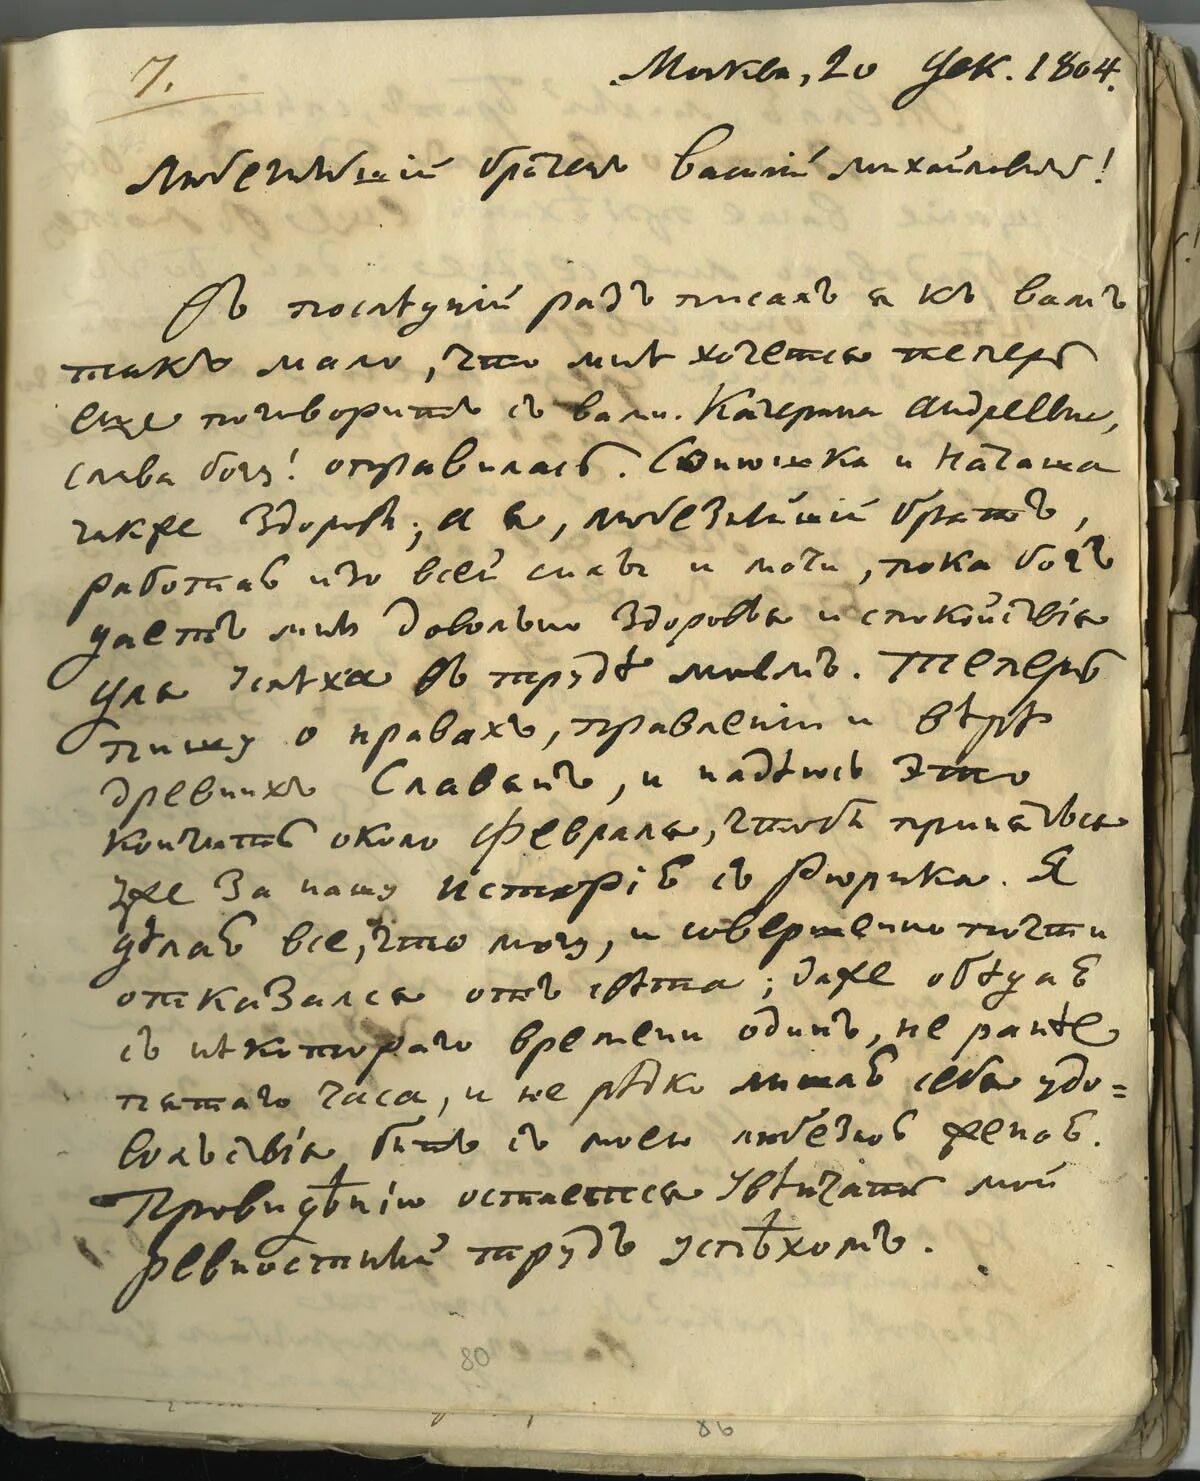 7.
Москва, 20 Дек. 1804.
Любезнѣйшій братецъ Василій Михайловичь!
Въ послѣдній разъ писалъ я къ вамъ
такъ мало, что мнѣ хочется теперь
еще поговорить съ вами. Катерина Андреевна,
слава богу! оправилась. Сонюшка и Наташа
также здоровы; а я, любезнѣйшій братъ,
работаю изо всей силы и мочи, пока богъ
даетъ мнѣ довольно здоровья и спокойствія
для успѣха въ трудѣ моемъ. Теперь
пишу о нравахъ, правленіи и вѣрѣ
древнихъ Славянъ, и надѣюсь это
кончить около Февраля, чтобы приняться
уже за нашу Исторію съ Рюрика. Я
дѣлаю все, что могу, и совершенно почти
отказался отъ свѣта; даже обѣдаю
съ нѣкотораго времени одинъ, не ранѣе
пятаго часа, и не рѣдко лишаю себя удо=
вольствія быть съ моею любезною женою.
Провидѣнію остается увѣнчать мой
ревностный трудъ успѣхомъ.
80
86